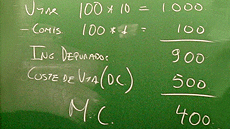 Vtas 100 * 10 = 1000
- Comis 100 * 1 = 100
Ing Depurado: 900
Coste de Vta (DC) 500
M.C. 400.